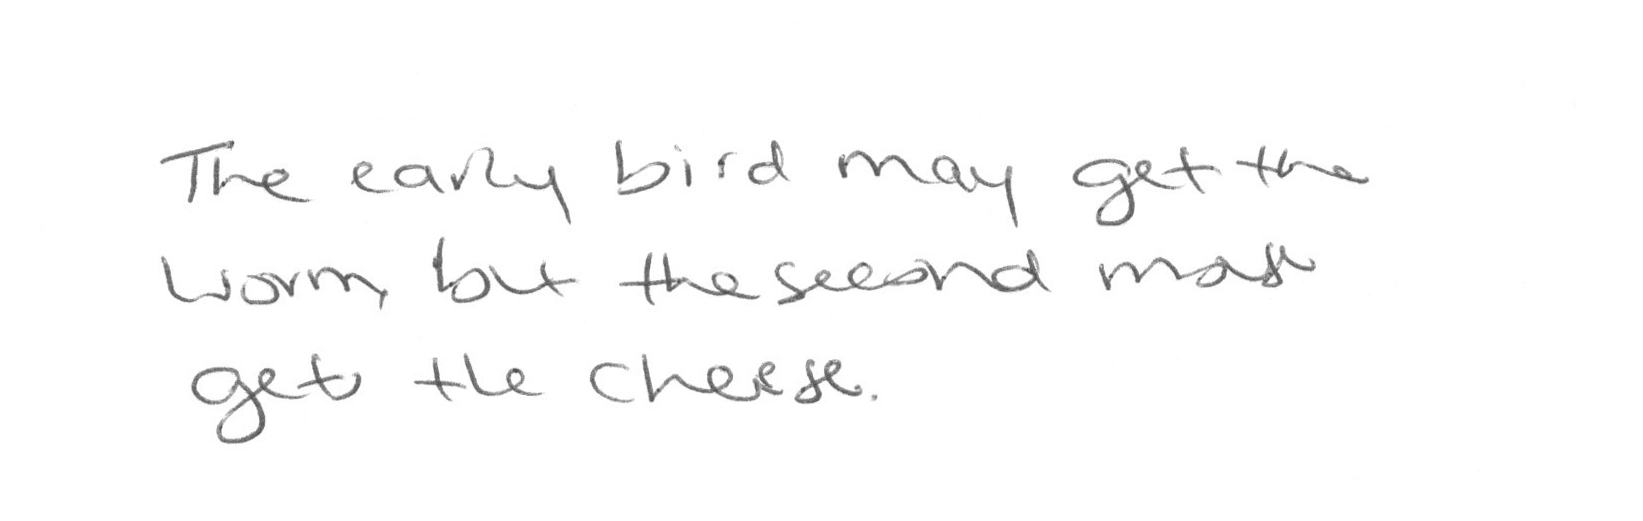 The early bird may get the
worm, but the second
get the cheese.